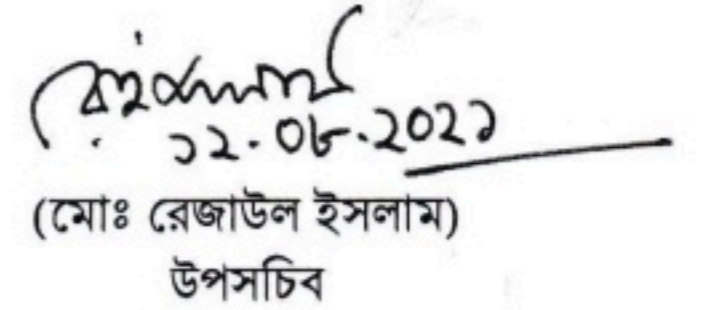 ১২.০৮.২০২১
(মোঃ রেজাউল ইসলাম)
উপসচিব